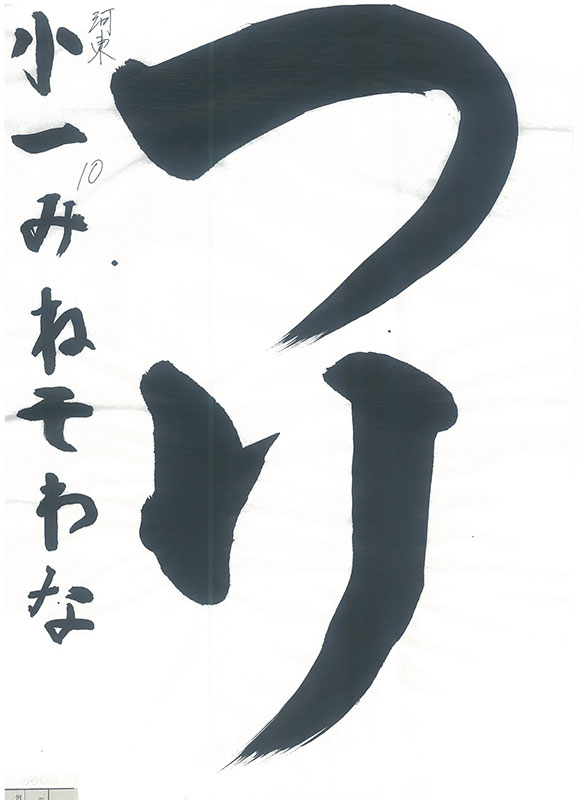 つり
河東
10
小一みねそわな